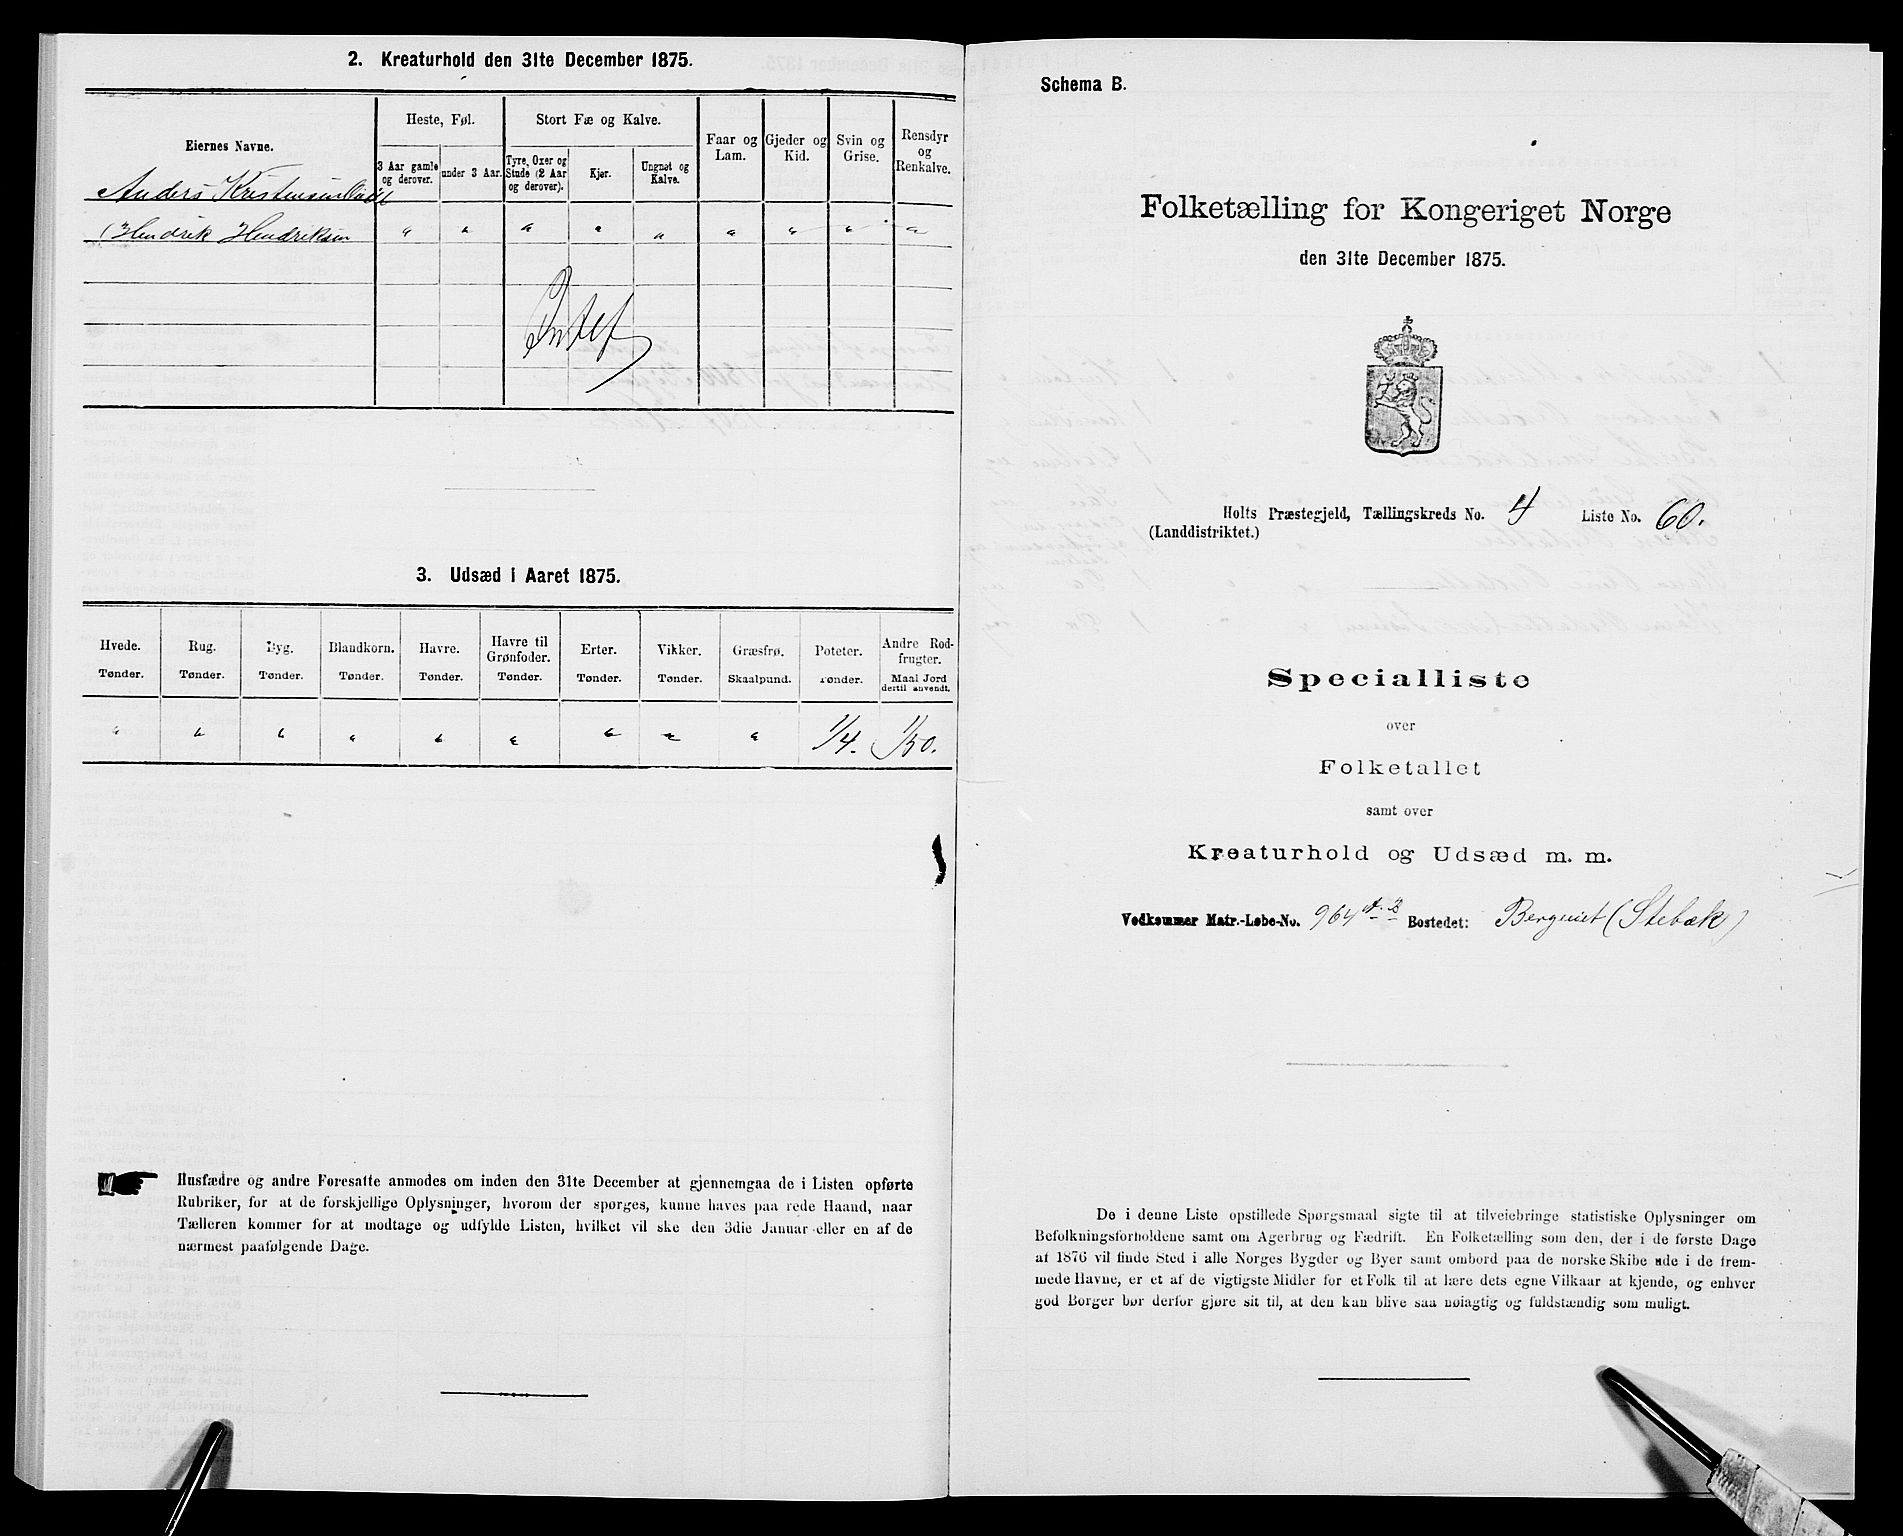 2. Kreaturhold den 31te December 1875.
Eiernes Navne.
Heste, Føl.
Stort Fæ og Kalve.
Faar og Lam.
Gjeder og Kid.
Svin og Grise.
Rensdyr og Renkalve.
3 Aar gamle og derover.
under 3 Aar.
Tyre, Oxer og Stude (2 Aar og derover).
Kjør.
Ungnøt og Kalve.
Anders Kristensen
Hendrik Hendriksen " " " " " " " " "
Intet
3. Udsæd i Aaret 1875.
Hvede. Rug. Byg. Blandkorn. Havre. Havre til Grønfoder. Erter. Vikker. Græsfrø. Poteter. Andre Rodfrugter.
Tønder. Tønder. Tønder. Tønder. Tønder. Tønder. Tønder. Tønder. Skaalpund. Tønder. Maal Jord dertil anvendt.
" " " " " " " " " 1/4. 1/50.
Husfædre og andre Foresatte anmodes om inden den 31te December at gjennemgaa de i Listen opførte
Rubriker, for at de forskjellige Oplysninger, hvorom der spørges, kunne haves paa rede Haand, naar
Tælleren kommer for at modtage og udfylde Listen, hvilket vil ske den 3die Januar eller en af de
nærmest paafølgende Dage.
Schema B.
Folketælling for Kongeriget Norge
den 31te December 1875.
Holts Præstegjeld, Tællingskreds No. 4 Liste No. 60.
(Landdistriktet.)
Specialliste
over
Folketallet
samt over
Kreaturhold og Udsæd m. m.
Vedkommer Matr.-Løbe-No. 964 Bostedet: (Stebæk)
De i denne Liste opstillede Spørgsmaal sigte til at tilveiebringe statistiske Oplysninger om
Befolkningsforholdene samt om Agerbrug og Fædrift. En Folketælling som den, der i de første Dage
af 1876 vil finde Sted i alle Norges Bygder og Byer samt ombord paa de norske Skibe ude i de frem-
mede Havne, er et af de vigtigste Midler for et Folk til at lære dets egne Vilkaar at kjende, og enhver
god Borger bør derfor gjøre sit til, at den kan blive saa nøiagtig og fuldstændig som muligt.